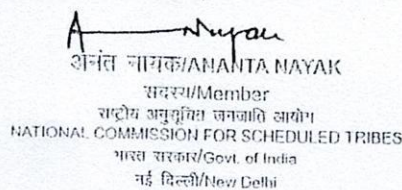 अनंत नायक/ANANTA NAYAK
सदस्य/Member
राष्ट्रीय अनुसूचित जनजाति आयोग
NATIONAL COMMISSION FOR SCHEDULED TRIBES
भारत सरकार/Govt. of India
नई दिल्ली/New Delhi